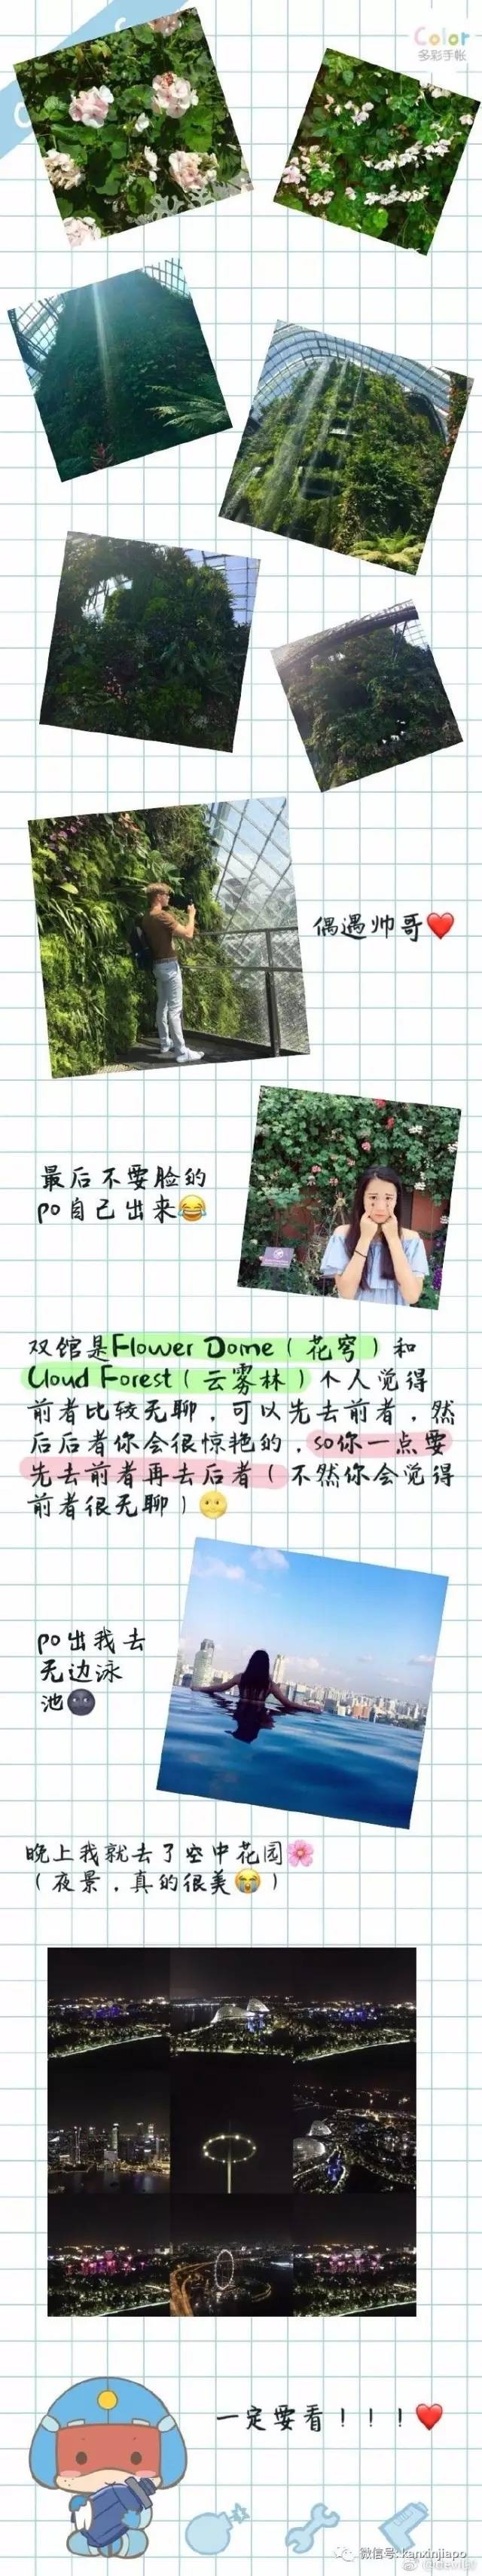 Color
多彩手帐
偶遇帅哥❤️
最后不要脸的
po自己出来😂
双馆是Flower Dome（花穹）和
Cloud Forest（云雾林）个人觉得
前者比较无聊，可以先去前者，然
后后者你会很惊艳的，so你一点要
先去前者再去后者（不然你会觉得
前者很无聊）🌝
po出我去
无边泳
池🌚
晚上我就去了空中花园🌸
（夜景，真的很美😭）
一定要看！！！❤️
微信号: kanxinjiapo